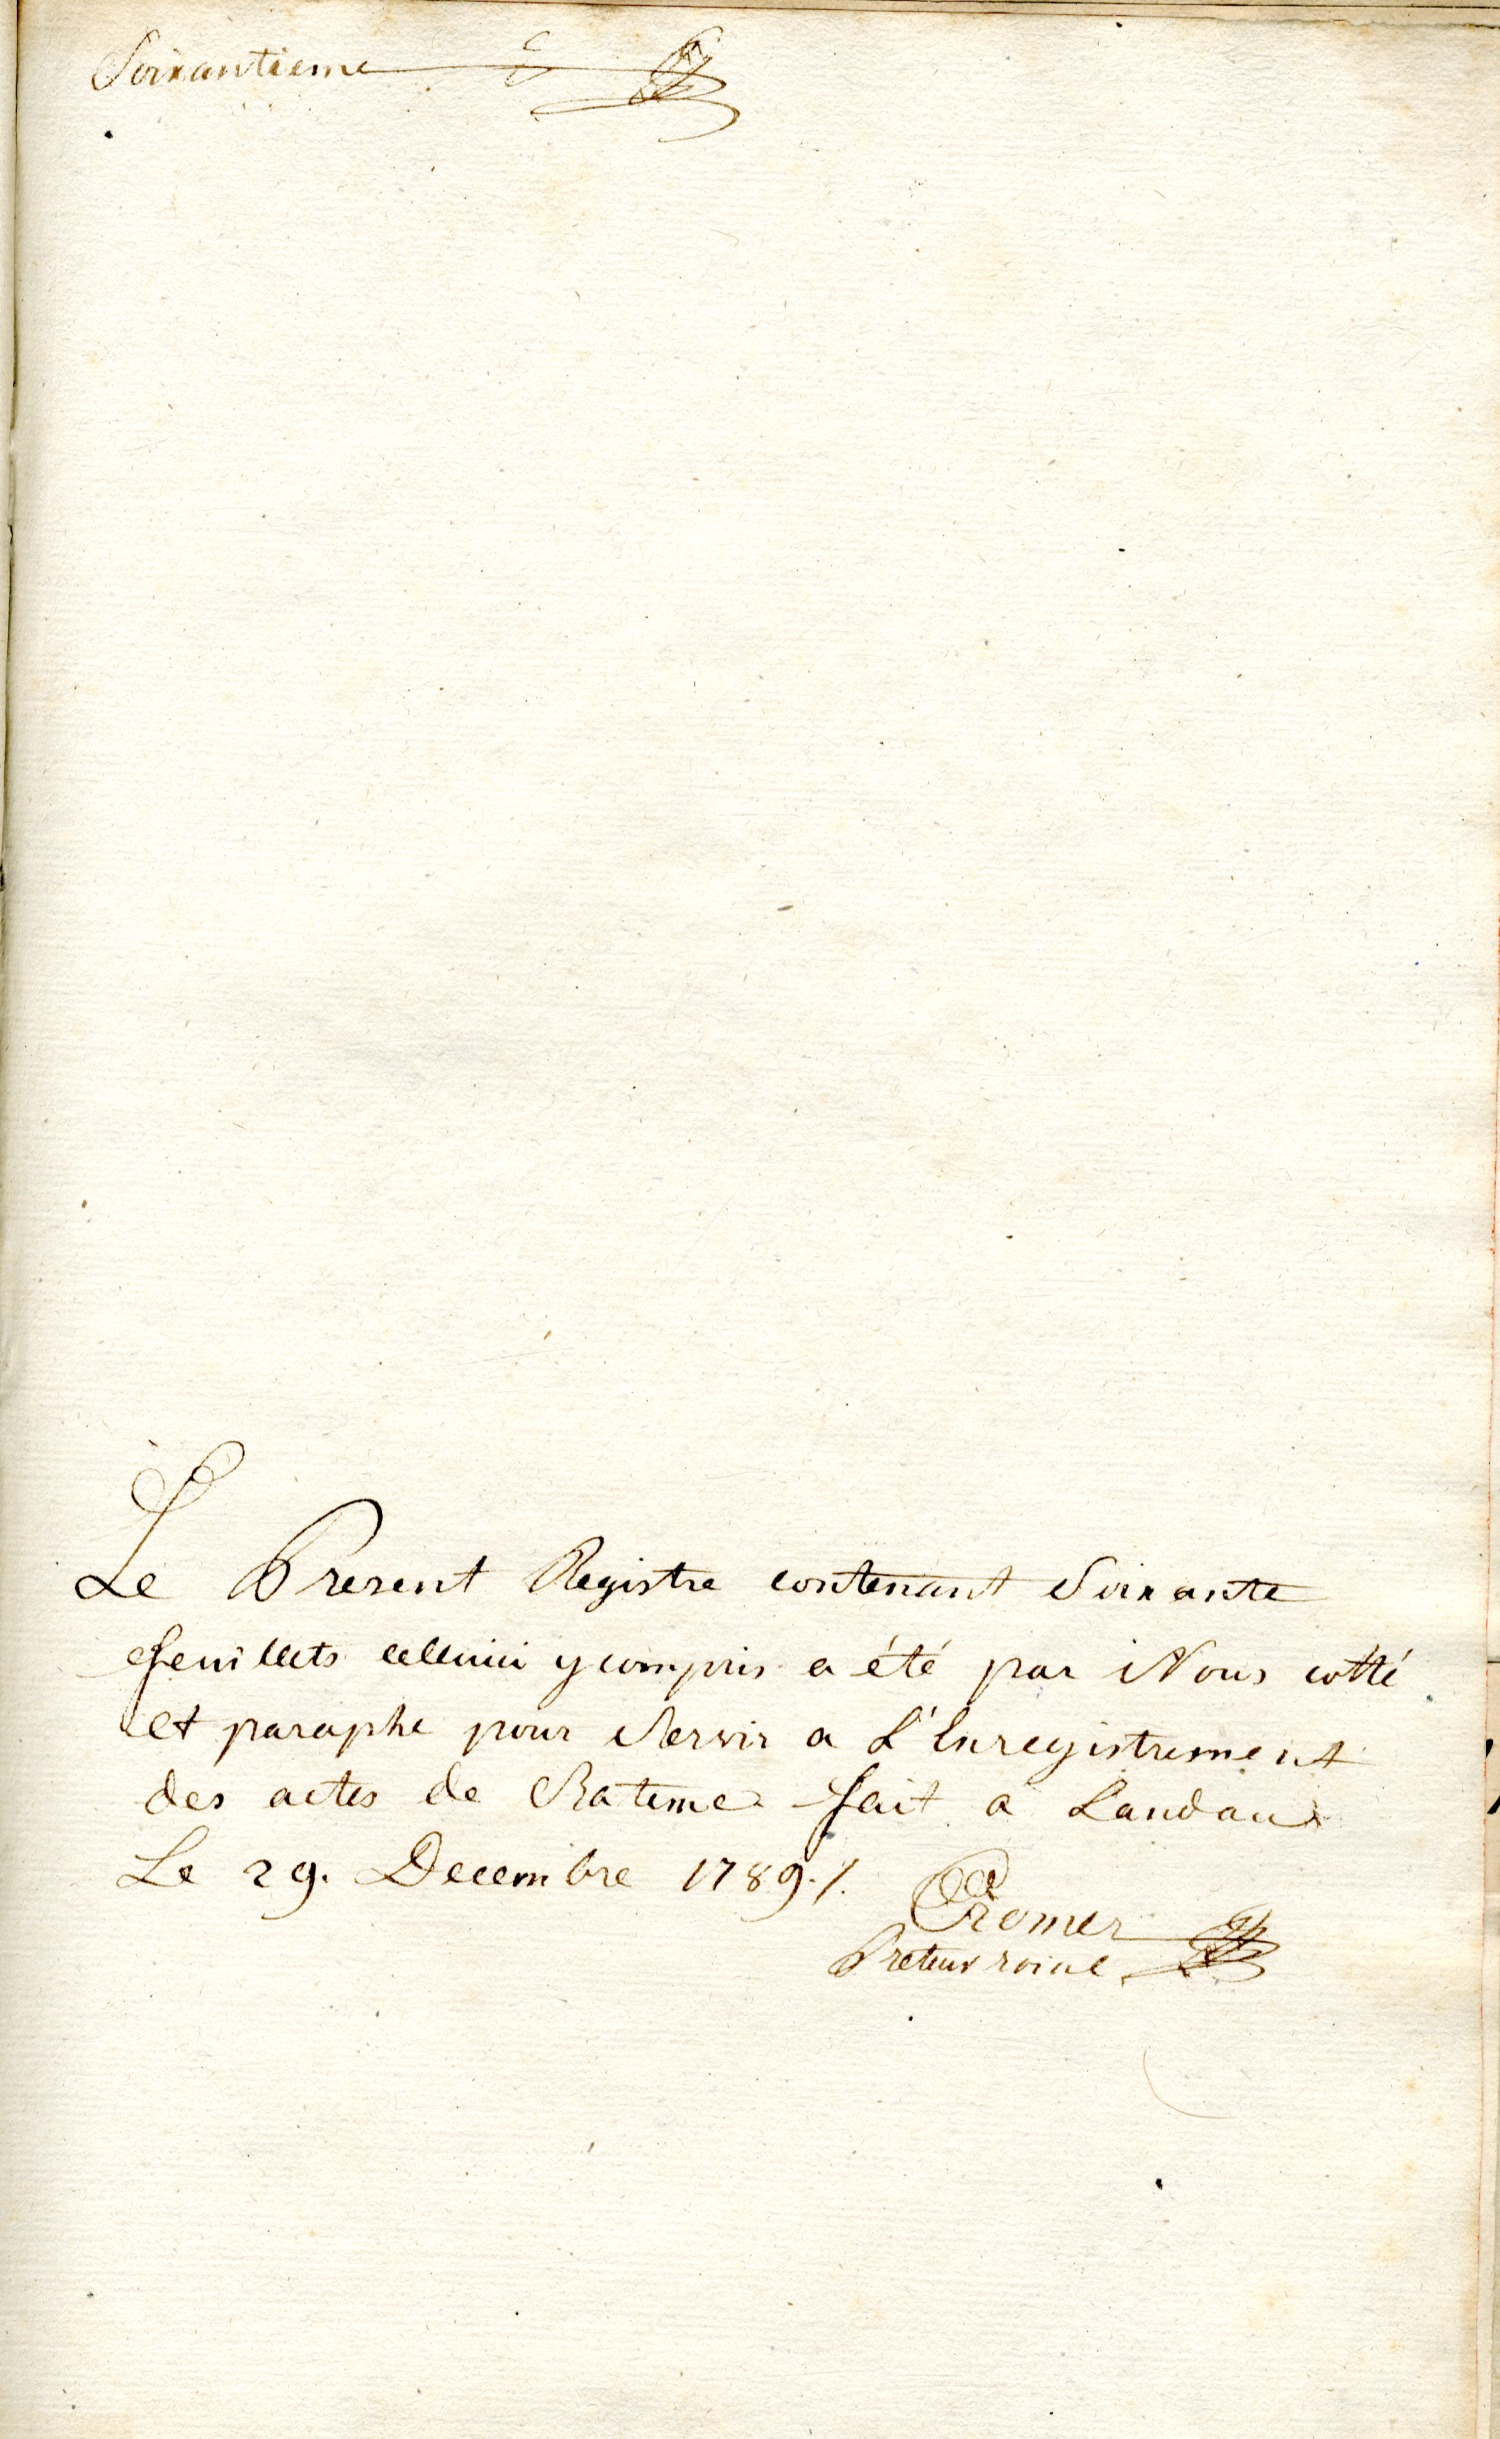 Soixantieme
Le Present Registre contenant Soixante
feuillets celluici y compris a été par Nous cotté
et paraphe pour Servir a L'Enregistrement
des actes de Bateme fait a Landau
Le 29. Decembre 1789./.
Romer
Preteur roial